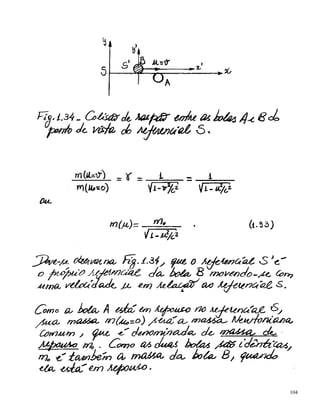 y
y'
S
S'
B
μ=v
x'
x
A
Fig. 1.34 - Colisão de raspão entre as bolas A e B do
ponto de vista do referencial S.
m(μ=v) / m(μ₀=0) = γ = 1/√(1-v²/c²) = 1/√(1-μ²/c²)
ou
m(μ) = m₀/√(1-μ²/c²) . (1.93)
Deve-se observar na Fig. 1.34, que o referencial S' é
o próprio referencial da bola B movendo-se com
uma velocidade μ em relação ao referencial S.
Como a bola A está em repouso no referencial S,
sua massa m(μ₀=0) será a massa Newtoniana
comum, que é denominada de massa de
repouso m₀. Como as duas bolas são idênticas,
m₀ é também a massa da bola B, quando
ela está em repouso.
104